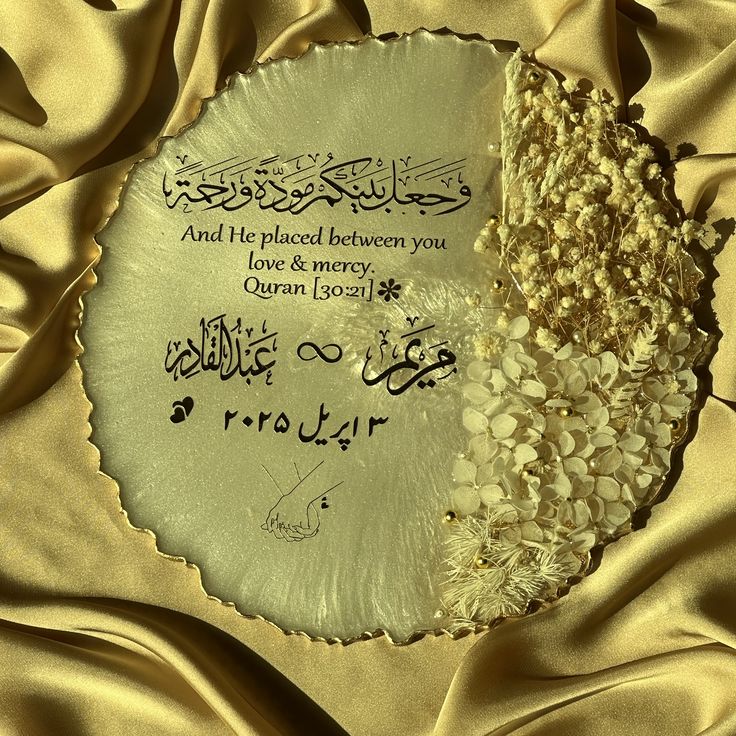 وَجَعَلَ بَيْنَكُمْ مَوَدَّةً وَرَحْمَةً
And He placed between you
love & mercy.
Quran [30:21]
مَرْيَم ∞ عَبْدُالْقَادِر
٣ اپریل ٢٠٢٥